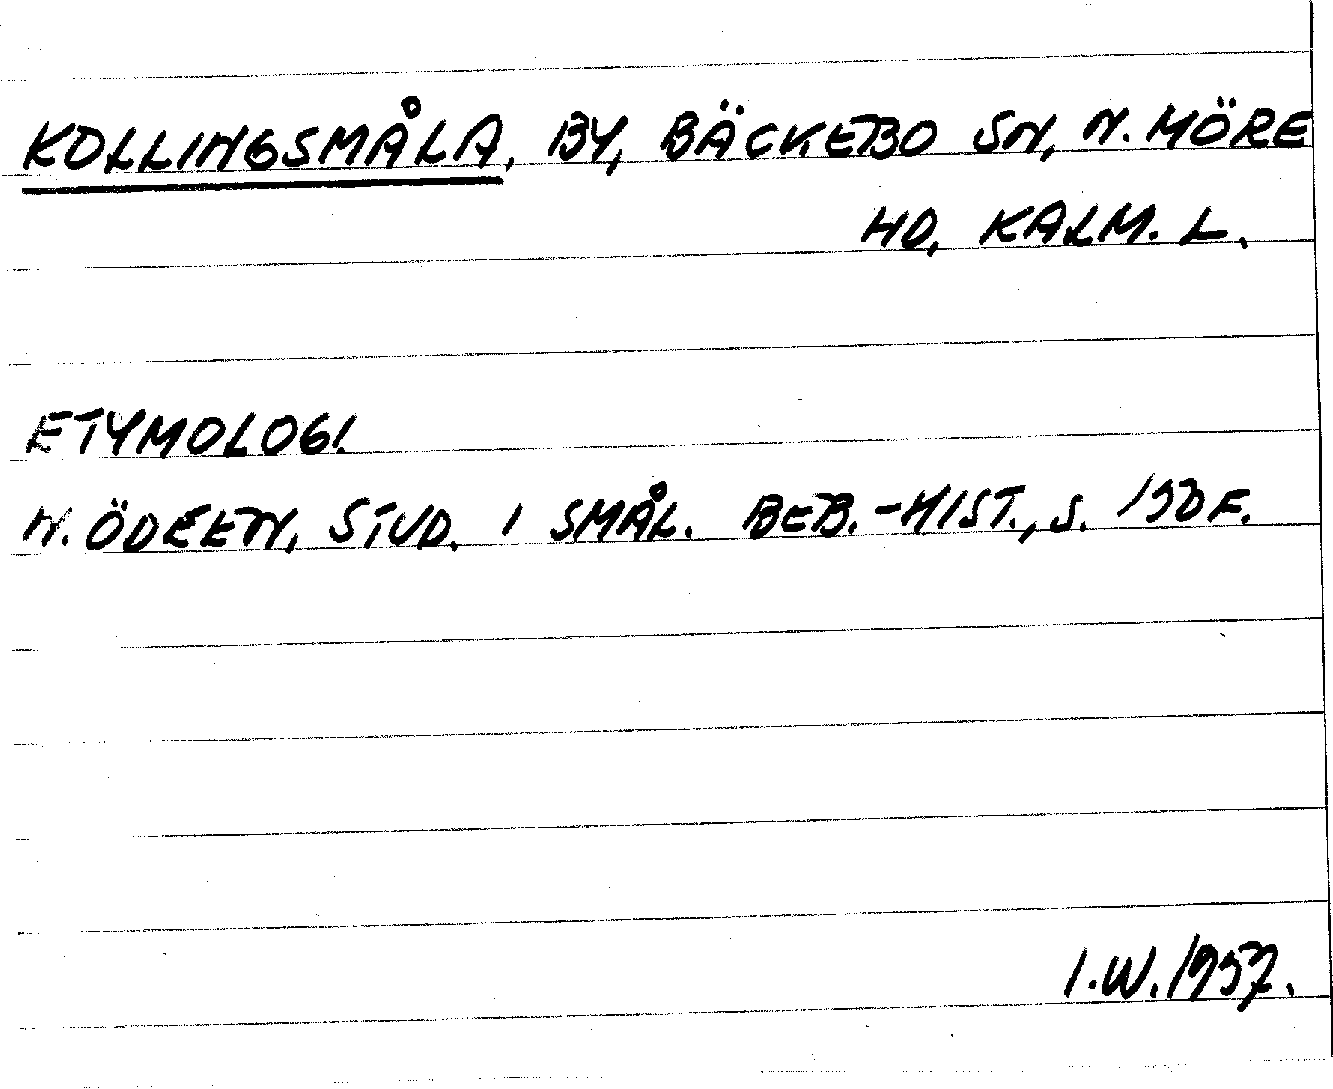 KOLLINGSMÅLA, BY, BÄCKEBO SN, N. MÖRE
HD, KALM. L.
ETYMOLOGI
N. ÖDEEN, STUD. I SMÅL. BEB.-HIST., S.
I.W. 1957.